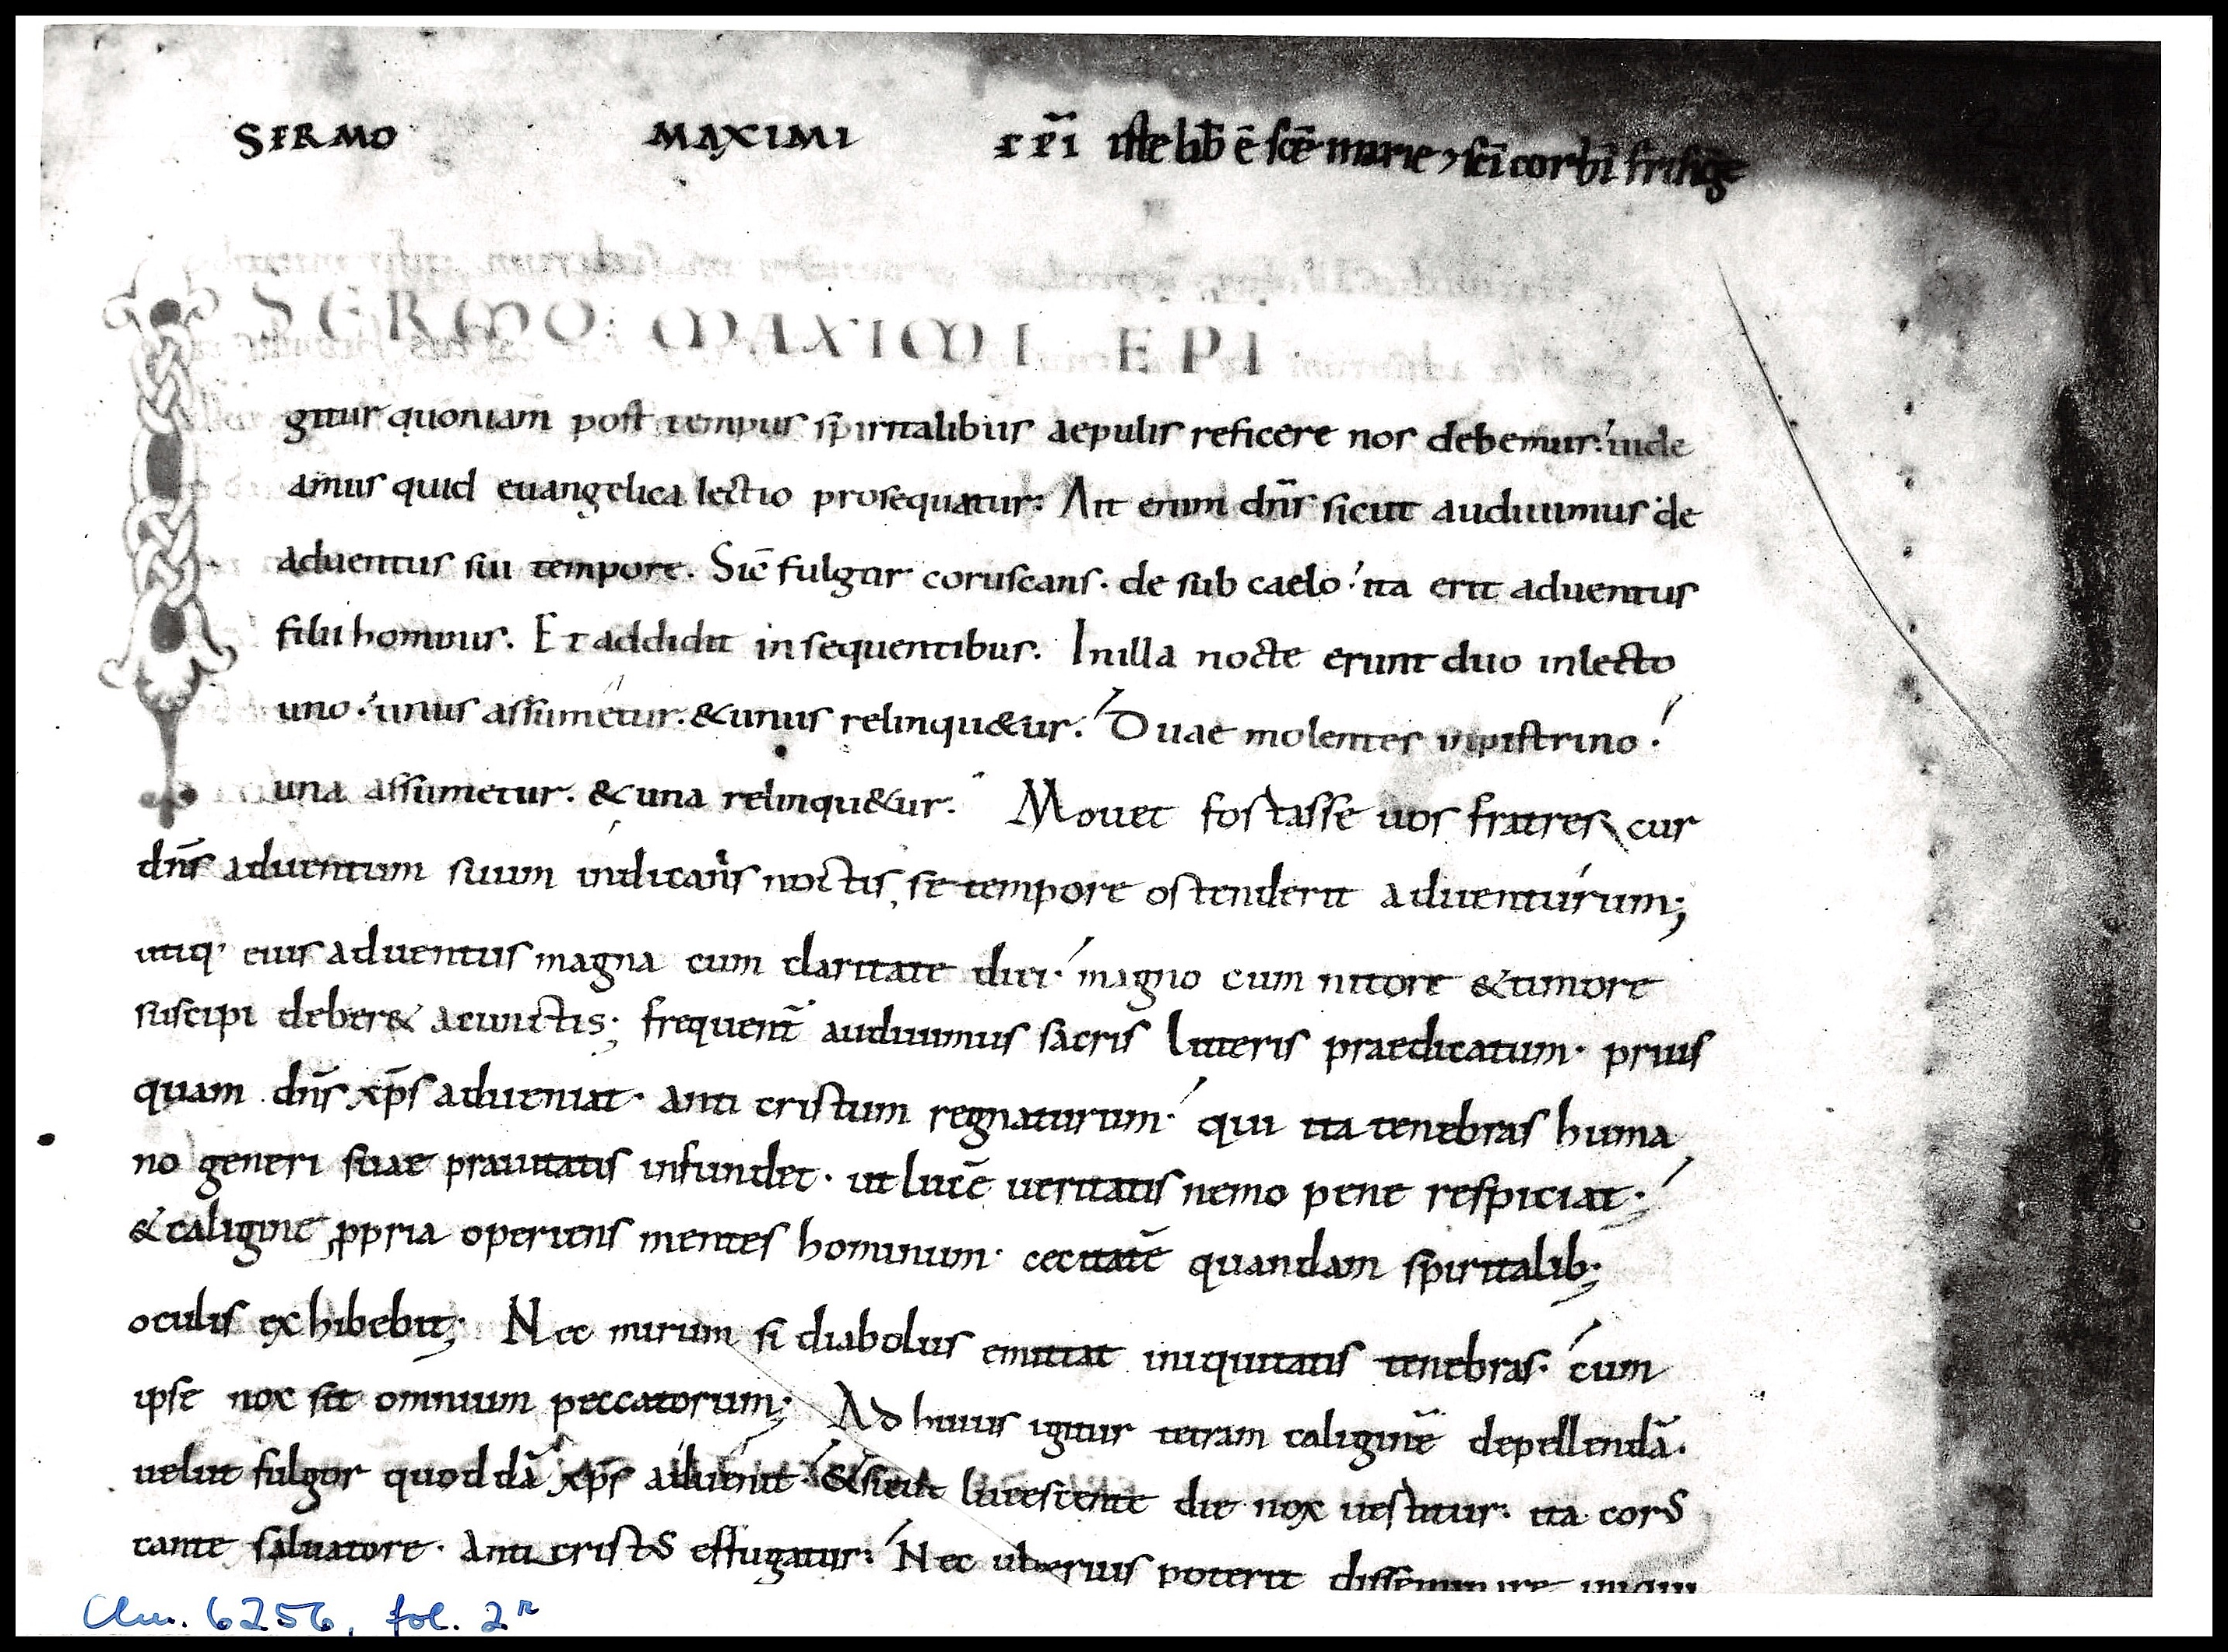 SERMO MAXIMI EPĪ iste lib̄ ē scē marie ⁊ scī corb̄ī frisīḡ
SERMO: MAXIMI EPĪ
gitur quoniam post tempus spiritalibus aepulis reficere nos debemus: uide
amus quid euangelica lectio prosequatur: Ait enim dn̄s sicut audiuimus de
aduentus sui tempore. Sic̄ fulgur coruscans. de sub caelo: ita erit aduentus
filii hominis. Et addidit in sequentibus. Inilla nocte erunt duo inlecto
uno: unus assumetur. &unus relinqu&ur: Duae molentes inpistrino:
una assumetur. &una relinqu&ur: Mouet fostasse uos fratres cur
dn̄s aduentum suum indicans noctis se tempore ostenderit aduenturum;
utiq· eius aduentus magna cum claritate diei· magno cum nitore &timore
suscipi deber& acunctis; frequent̄ audiuimus sacris litteris praedicatum· prius
quam dn̄s xp̄s adueniat· anti cristum regnaturum· qui ita tenebras huma
no generi suae prauitatis infundet· ut lucē ueritatis nemo pene respiciat·
&caligine ꝓpria operiens mentes hominum· cecitatē quandam spiritalib;
oculis exhibebit; Nec mirum si diabolus emittat iniquitatis tenebras· cum
ipse nox sit omnium peccatorum; Ad huius igitur tetram caliginē depellendā.
uelut fulgor quoddā xp̄s aduenit· &sicut lucescente die nox uestitur· ita cors
tante saluatore· Anti cristus effugatur: Nec ulterius poterit disseminare
Clm. 6256, fol. 2ʳ